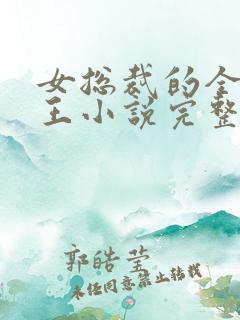 女总裁的全
王小说完整
郭皓莹
未经同意禁止转载